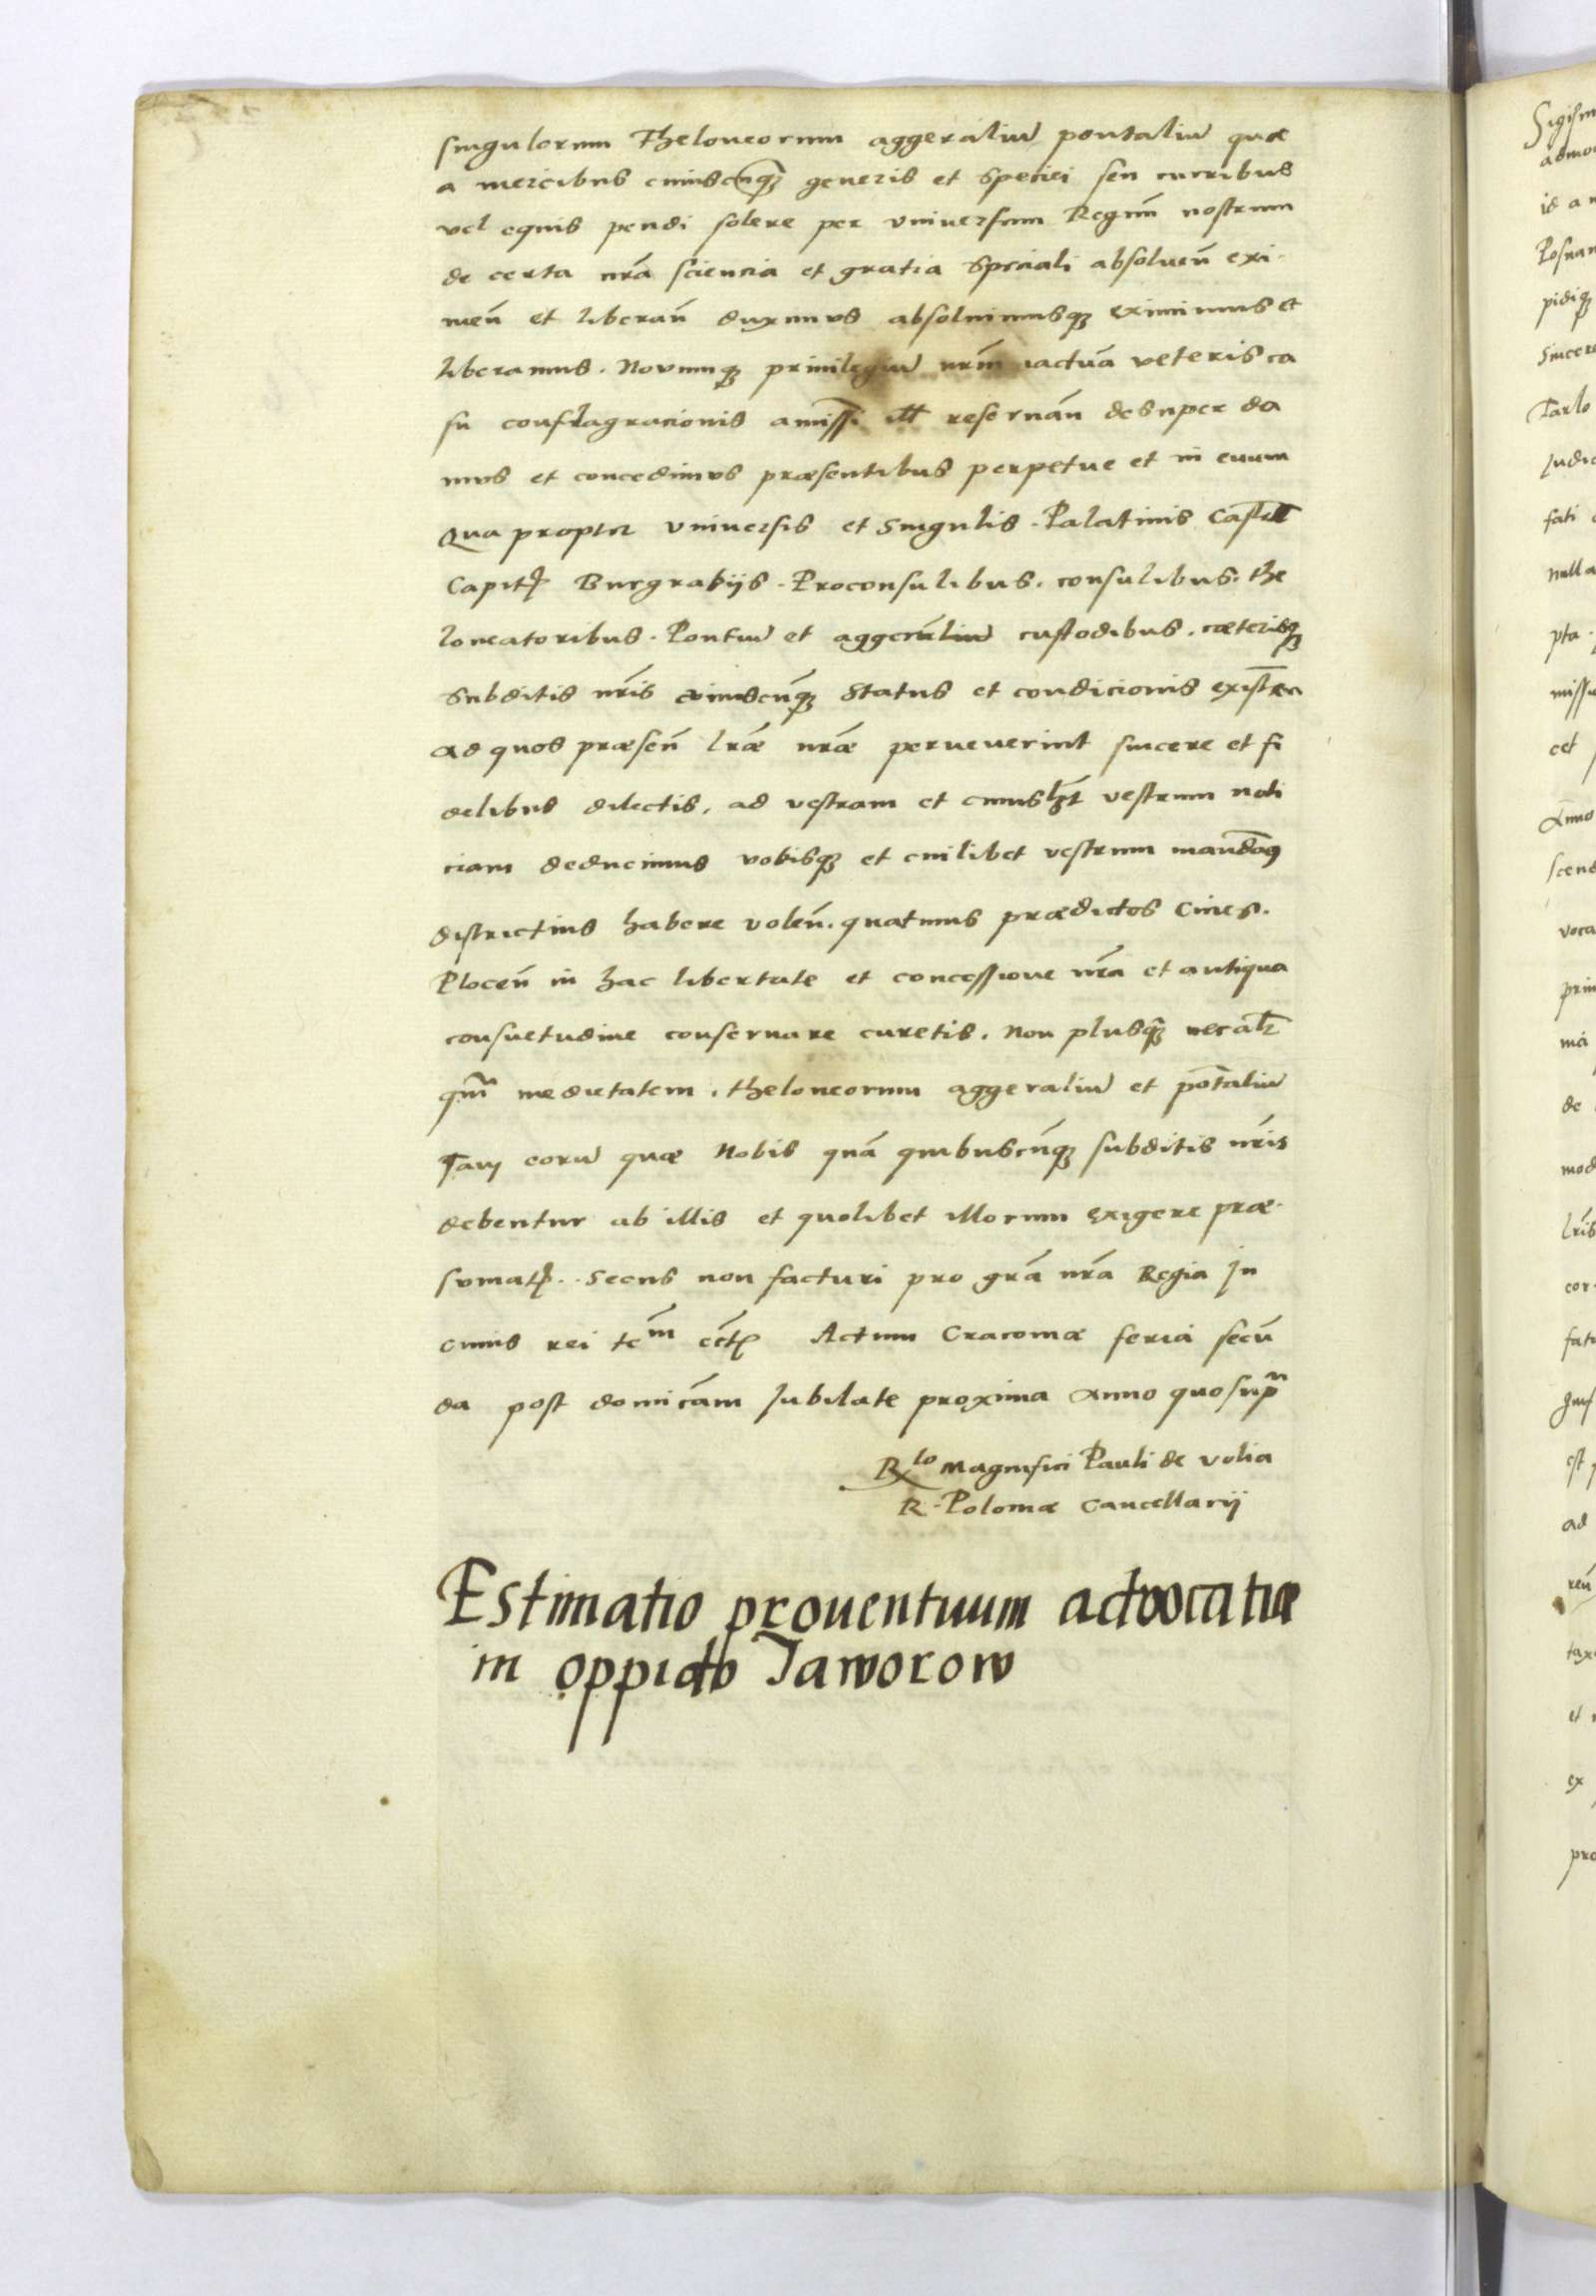 singulorum Theloneorum aggeraliũ pontaliũ quæ
a mercibus cuiuscũq₃ generis et speciei seu curribus
vel equis pendi solere per vniuersum Regnũ nostrum
de certa nrã sciencia et gratia speciali absoluen̄ exi-
men̄ et liberan̄ duximus absoluimusq₃ eximimus et
liberamus. Nouumq₃ priuilegiũ nrm̄ iactura veteris ca
su conflagracionis amissi reseruan̄ desuper da
mus et concedimus præsentibus perpetue et in euum
Qua propter vniuersis et singulis. Palatinis Castell
Capit̄ Burgrabijs. Proconsulibus. consulibus. the
loneatoribus. Pontiũ et aggeraliũ custodibus. cæterisq₃
subditis nrĩs cuiuscũq₃ status et condicionis existen
ad quos præsen̄ lræ̃ nræ̃ peruenerint sincere et fi
delibus dilectis, ad vestram et cuiuslẓt vestrum noti
ciam deducimus vobisq₃ et cuilibet vestrum mandamꝰ
districtius habere volen̄. quatinus prædictos Ciues.
Plocen̄ in hac libertate et concessione nrã et antiqua
consuetudine conseruare curetis. Non plusq₃ nec al̄r
qm̃ medietatem. theloneorum aggeraliũ et põtaliũ
Tam eorũ quæ Nobis quã quibuscũq₃ subditis nrĩs
debentur ab illis et quolibet illorum exigere præ-
sumat̄. secus non facturi pro grã nrã Regia In
cuius rei tc̃m ect̄ Actum Cracouiæ feria secũ
da post domicãm Iubilate proxima Anno quo supᵃ
Rlo Magnifici Pauli de Volia
R. Poloniæ Cancellarij
Estimatio prouentuum aduocatiæ
in oppido Jaworow